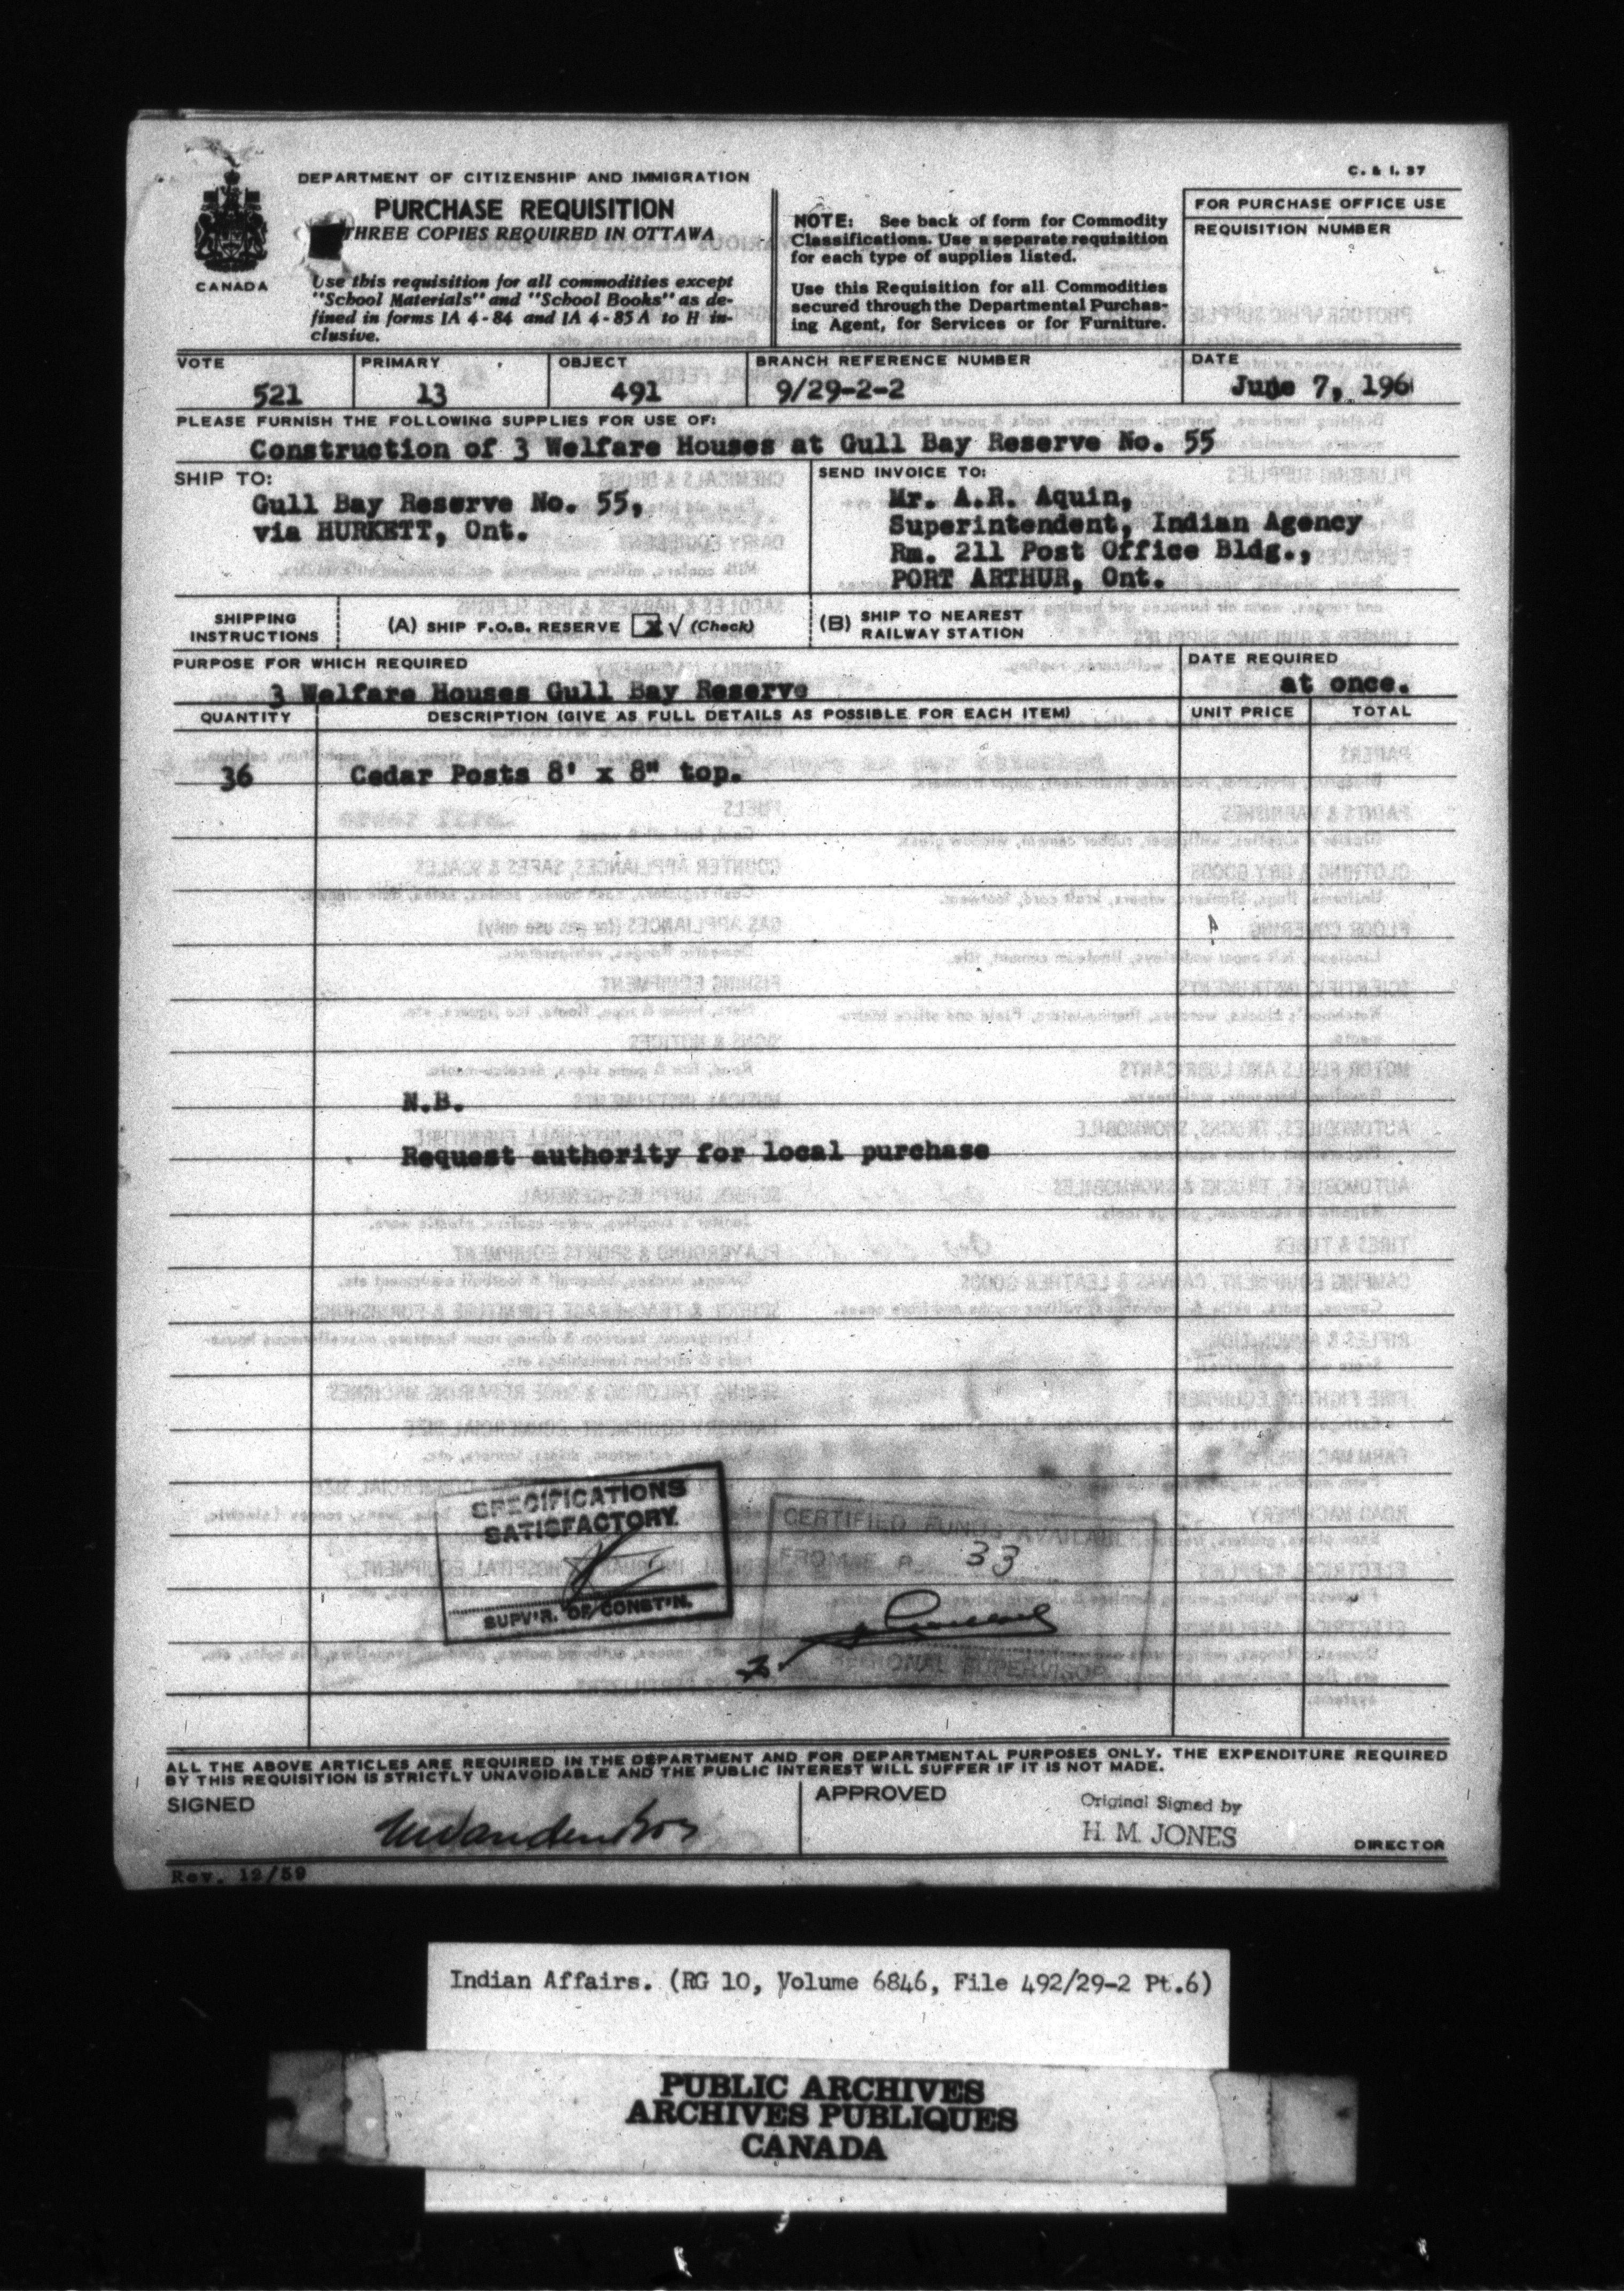 C. & I. 37
DEPARTMENT OF CITIZENSHIP AND IMMIGRATION
PURCHASE REQUISITION
THREE COPIES REQUIRED IN OTTAWA
CANADA
Use this requisition for all commodities except
"School Materials" and "School Books" as de-
fined in forms IA 4-84 and IA 4-85 A to H in-
clusive.
NOTE: See back of form for Commodity
Classifications. Use a separate requisition
for each type of supplies listed.
Use this Requisition for all Commodities
secured through the Departmental Purchas-
ing Agent, for Services or for Furniture.
FOR PURCHASE OFFICE USE
REQUISITION NUMBER
VOTE PRIMARY OBJECT BRANCH REFERENCE NUMBER DATE
521 13 491 9/29-2-2 June 7, 196
PLEASE FURNISH THE FOLLOWING SUPPLIES FOR USE OF:
Construction of 3 Welfare Houses at Gull Bay Reserve No. 55
SHIP TO:
Gull Bay Reserve No. 55,
via HURKETT, Ont.
SEND INVOICE TO:
Mr. A.R. Aquin,
Superintendent, Indian Agency
Rm. 211 Post Office Bldg.,
PORT ARTHUR, Ont.
SHIPPING
INSTRUCTIONS
(A) SHIP F.O.B. RESERVE x √ (Check)
(B) SHIP TO NEAREST
RAILWAY STATION
PURPOSE FOR WHICH REQUIRED
3 Welfare Houses Gull Bay Reserve
DATE REQUIRED
at once.
QUANTITY DESCRIPTION (GIVE AS FULL DETAILS AS POSSIBLE FOR EACH ITEM) UNIT PRICE TOTAL
36 Cedar Posts 8' x 8" top.
N.B.
Request authority for local purchase
SPECIFICATIONS
SATISFACTORY
SUPV'R. OF CONST'N.
CERTIFIED FUNDS AVAILABLE
33
REGIONAL SUPERVISOR
ALL THE ABOVE ARTICLES ARE REQUIRED IN THE DEPARTMENT AND FOR DEPARTMENTAL PURPOSES ONLY. THE EXPENDITURE REQUIRED
BY THIS REQUISITION IS STRICTLY UNAVOIDABLE AND THE PUBLIC INTEREST WILL SUFFER IF IT IS NOT MADE.
SIGNED
APPROVED
Original Signed by
H. M. JONES
DIRECTOR
Rev. 12/59
Indian Affairs. (RG 10, Volume 6846, File 492/29-2 Pt.6)
PUBLIC ARCHIVES
ARCHIVES PUBLIQUES
CANADA